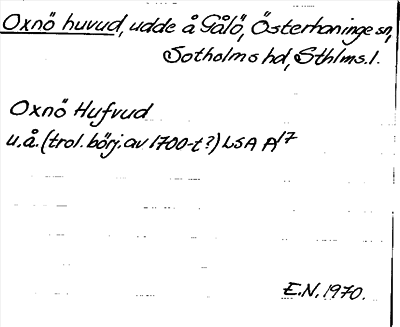 Oxnö huvud, udde å Gålö, Österhaninge sn,
Sotholms hd, Sthlms.l.
Oxnö Hufvud
u.å. (trol. börj. av 1700-t?) LSA A 17
E.N. 1970.